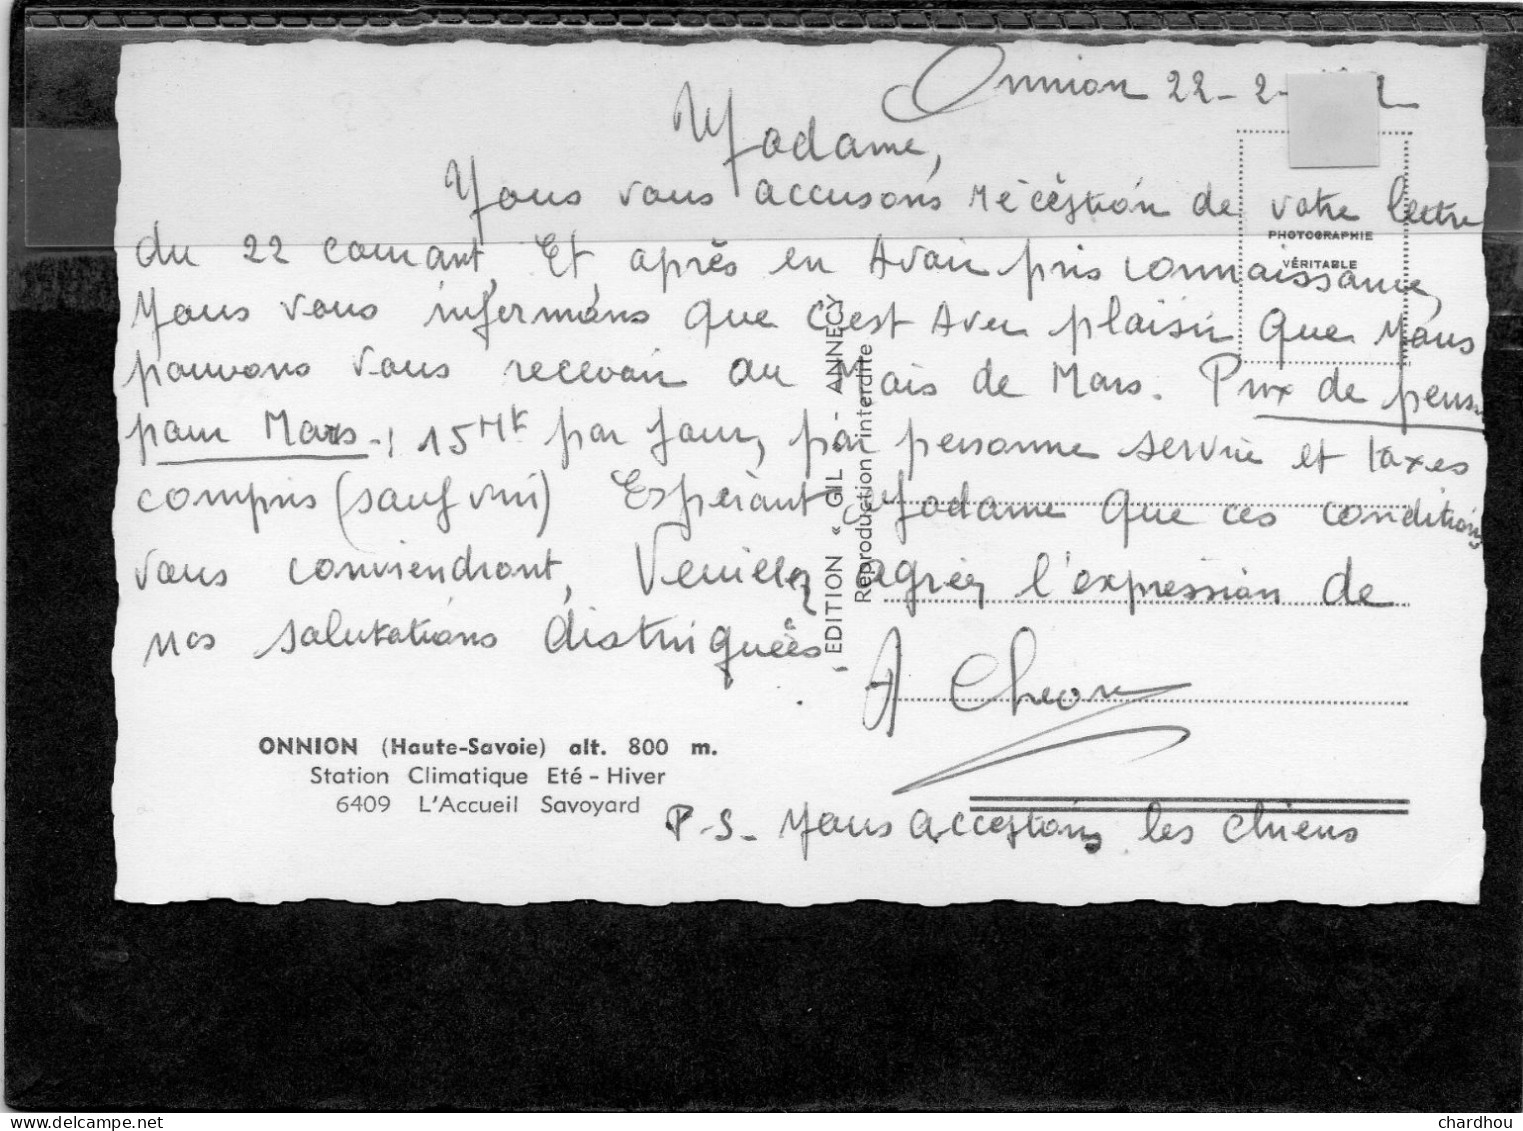 Onnion 22-2-
Madame,
Nous vous accusons réception de votre lettre
du 22 courant, Et après en Avoir pris connaissance,
Nous vous informons que c'est Avec plaisir que Nous
pouvons vous recevoir au Mois de Mars. Prix de pens
pour Mars : 15 par jour, par personne service et taxes
compris (sauf vin) Espérant Madame que ces conditions
vous conviendront, Veuillez agréer l'expression de
nos salutations distinguées.
A Cheon
P.S- Nous acceptons les chiens
PHOTOGRAPHIE
VÉRITABLE
EDITION « GIL » - ANNECY
Reproduction interdite
ONNION (Haute-Savoie) alt. 800 m.
Station Climatique Eté - Hiver
6409 L'Accueil Savoyard
chardhou